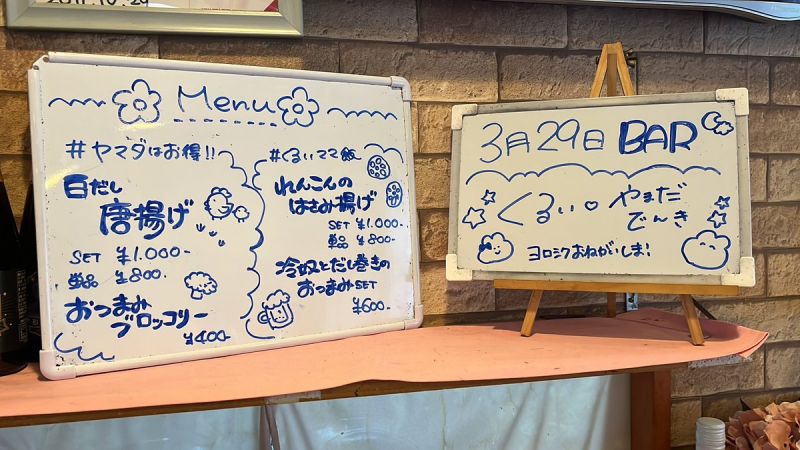 Menu
#ヤマダはお得!!
白だし
唐揚げ
SET ¥1.000-
単品 ¥800-
おつまみ
ブロッコリー
¥400-
#くるいママ飯
れんこんの
はさみ揚げ
SET ¥1.000-
単品 ¥800-
冷奴とだし巻きの
おつまみSET
¥600-
3月29日 BAR
くるい♡やまだ
でんき
ヨロシクおねがいしま!